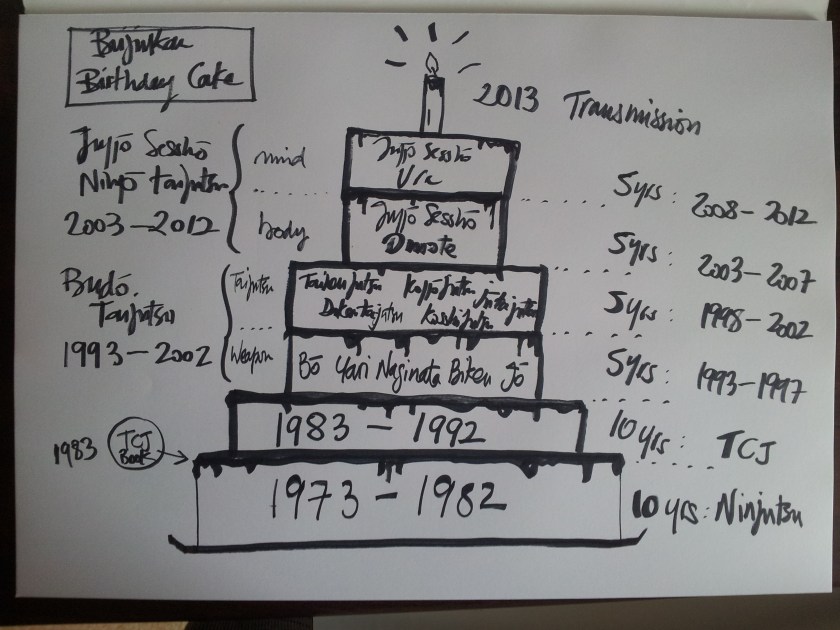 Bujinkan
Birthday Cake
2013 Transmission
Juppō Sesshō
Ninpō Taijutsu
2003 – 2012
mind
body
Juppō Sesshō
Ura
5yrs: 2008 – 2012
Juppō Sesshō
Omote
5yrs: 2003 – 2007
Budō
Taijutsu
1993 – 2002
Taijutsu
Weapon
Taihenjutsu Koppōjutsu Jutaijutsu
Dakentaijutsu Kosshijutsu
5yrs: 1998 – 2002
Bō Yari Naginata Biken Jō
5yrs: 1993 – 1997
1983 – 1992
10yrs: TCJ
1983
TCJ
Book
1973 – 1982
10yrs: Ninjutsu